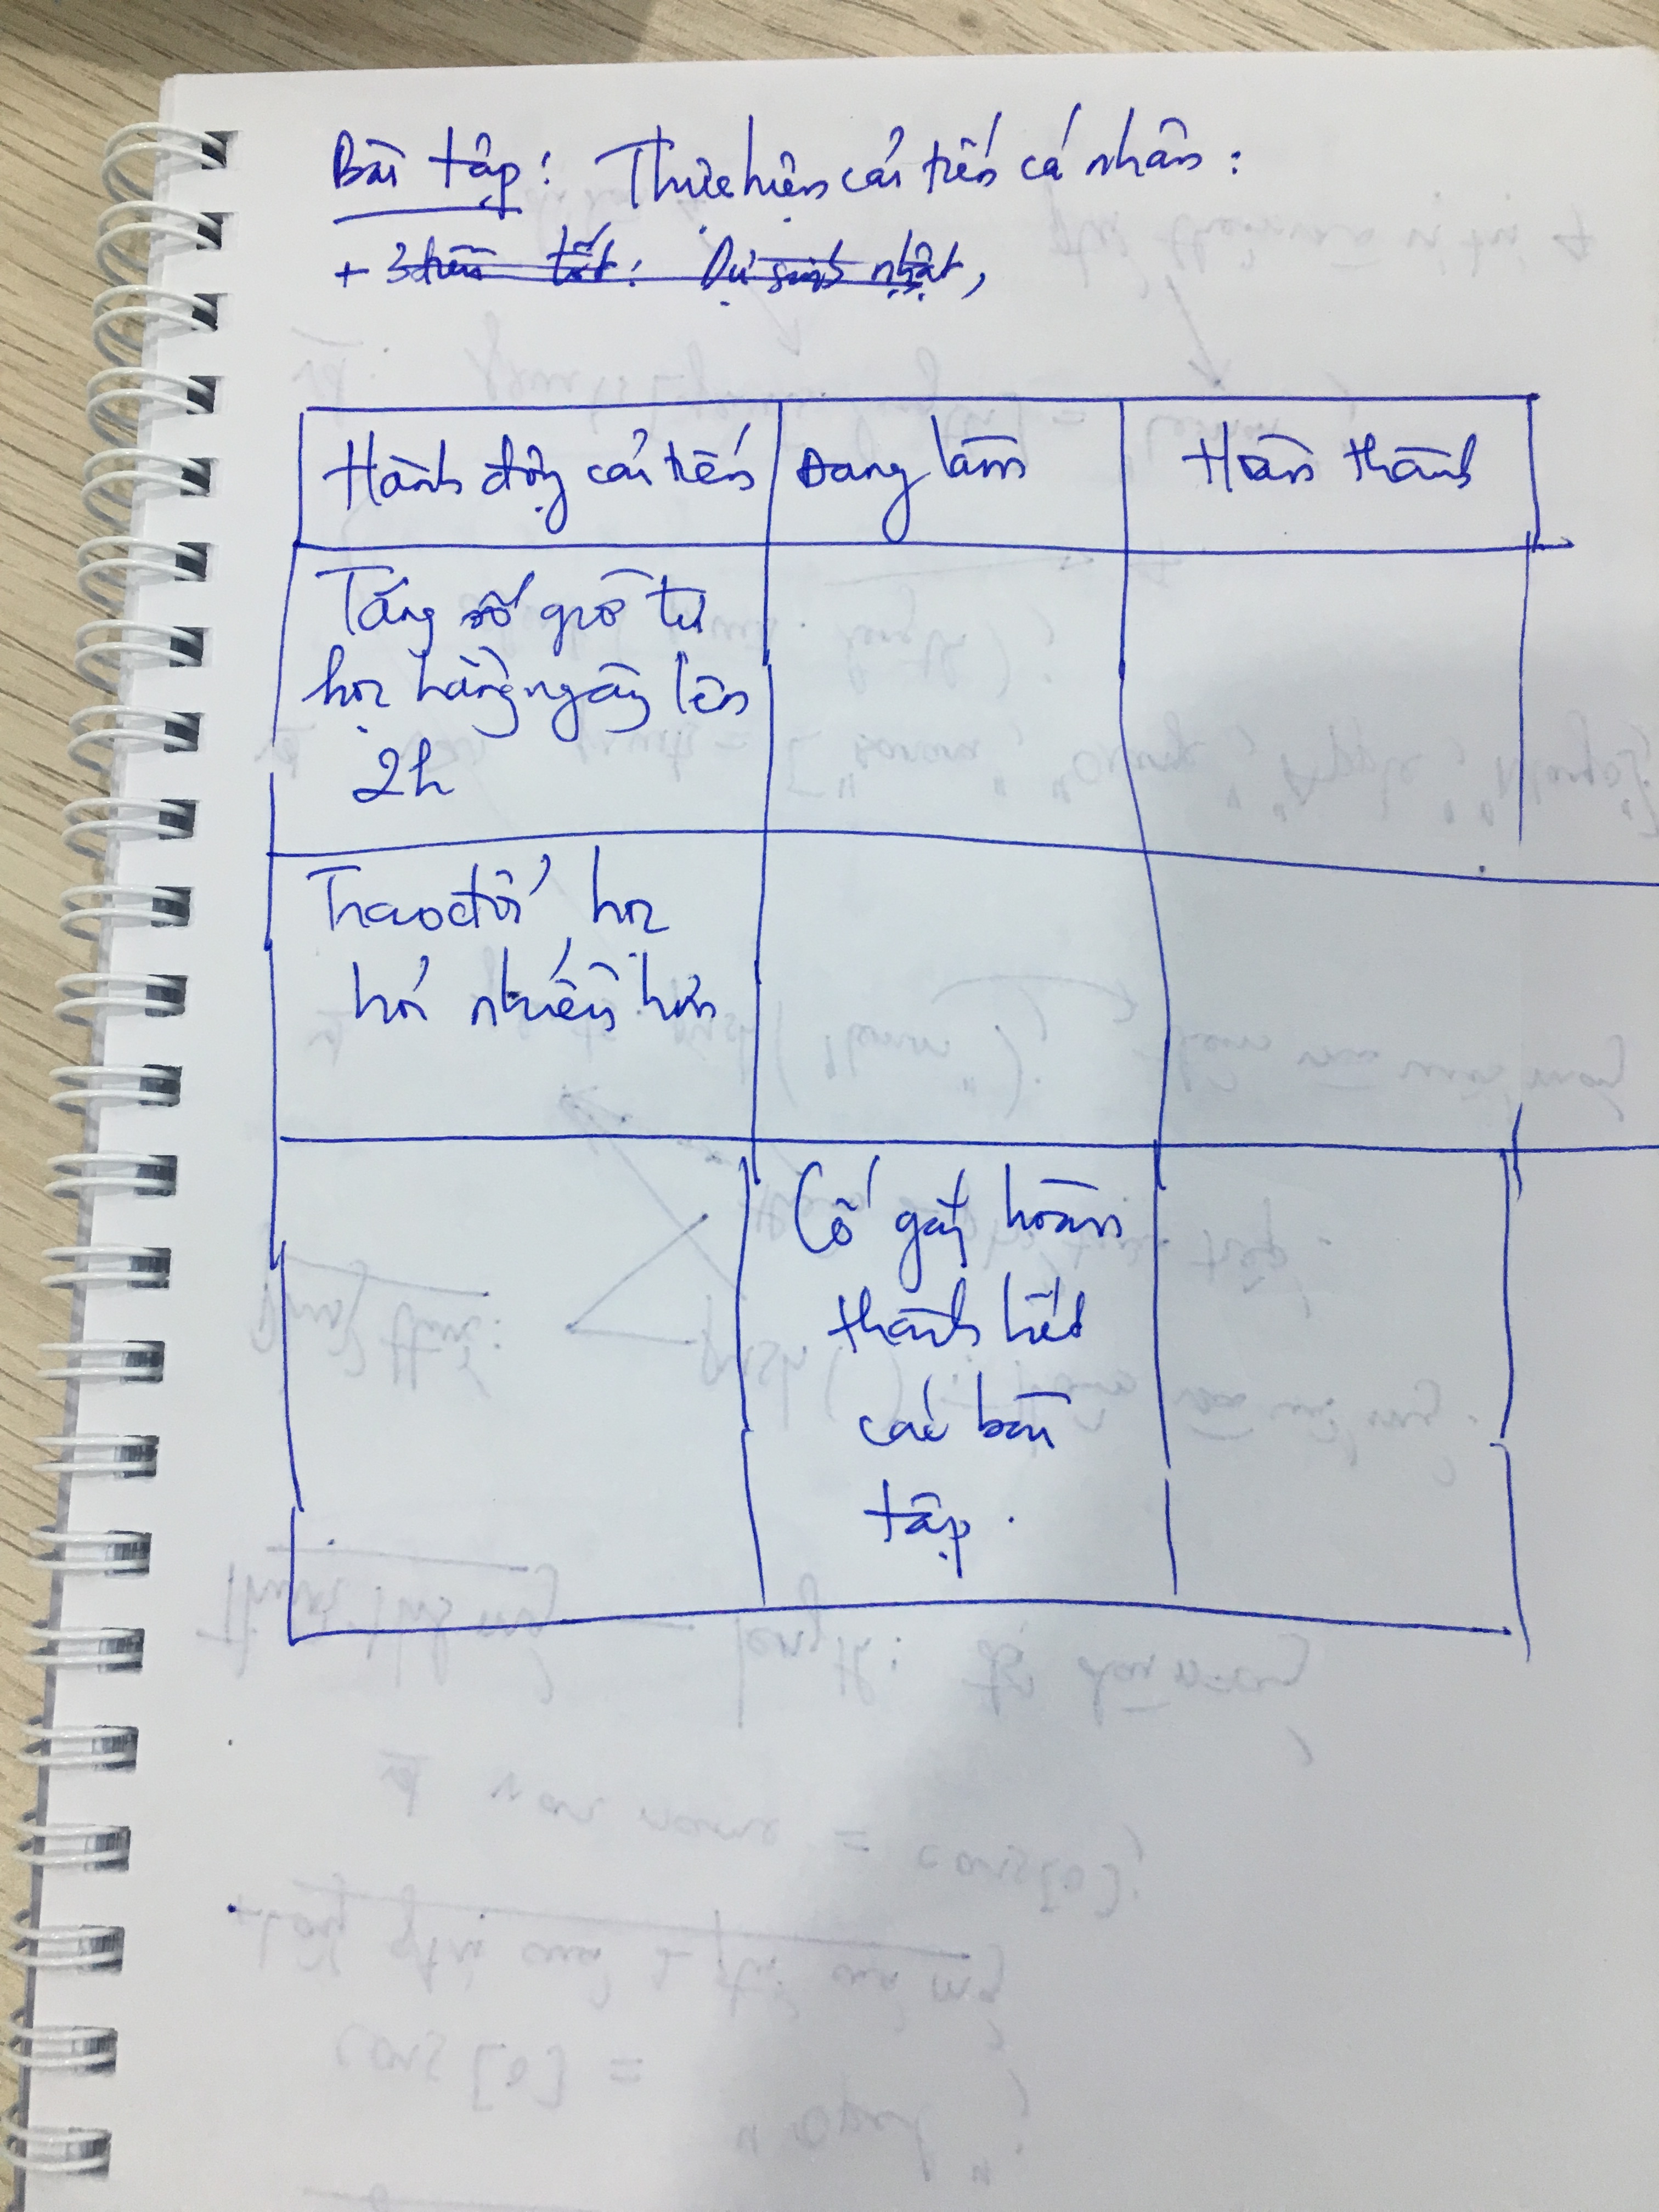 Bài tập: Thực hiện cải tiến cá nhân:
+ 3 tiến tốt: Dự sinh nhật,
Hành động cải tiến Đang làm Hoàn thành
Tăng số giờ tự
học hàng ngày lên
2h
Trao đổi học
hỏi nhiều hơn
Cố gắng hoàn
thành hết
các bài
tập.